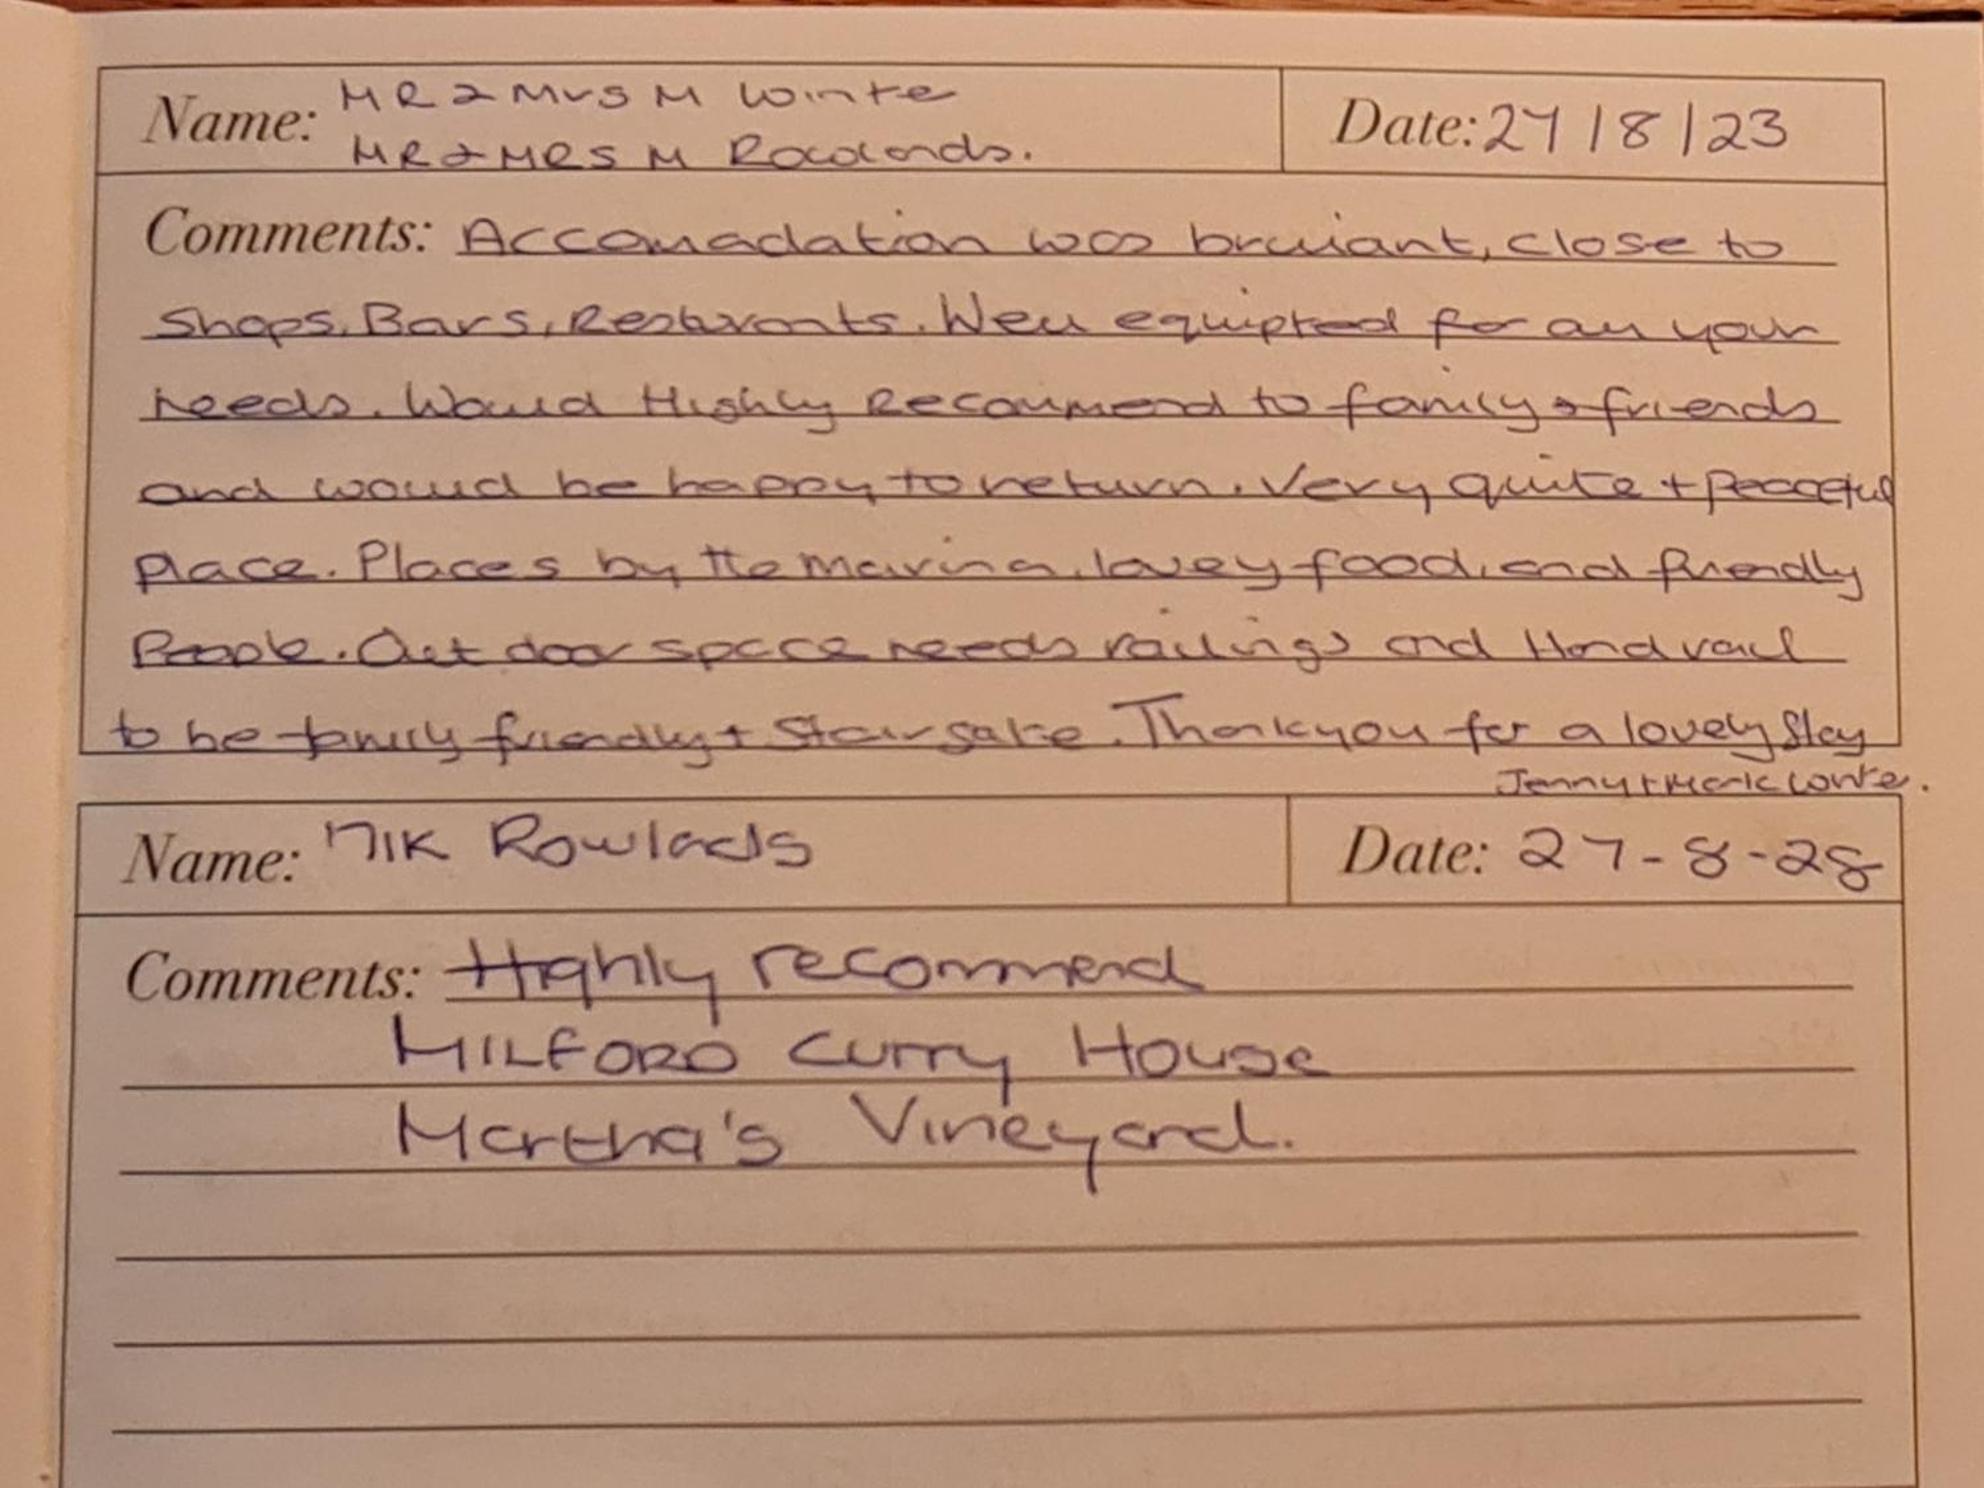 Name: MR & Mrs M Winte
MR & MRS M Rowlands.
Date: 27/8/23
Comments: Accomadation was brilliant, close to
Shops, Bars, Resturants. Well equipted for all your
needs. Would Highly Recommend to family & friends
and would be happy to return. Very quite + peaceful
place. Places by the Marina, lovey food, and friendly
People. Out door space needs railings and Hand rail
to be family friendly + Stair gate. Thankyou for a lovely stay
Jenny + Mark Winte.
Name: MIK Rowlads
Date: 27-8-28
Comments: Highly recommend
MILFORD Curry House
Martha's Vineyard.